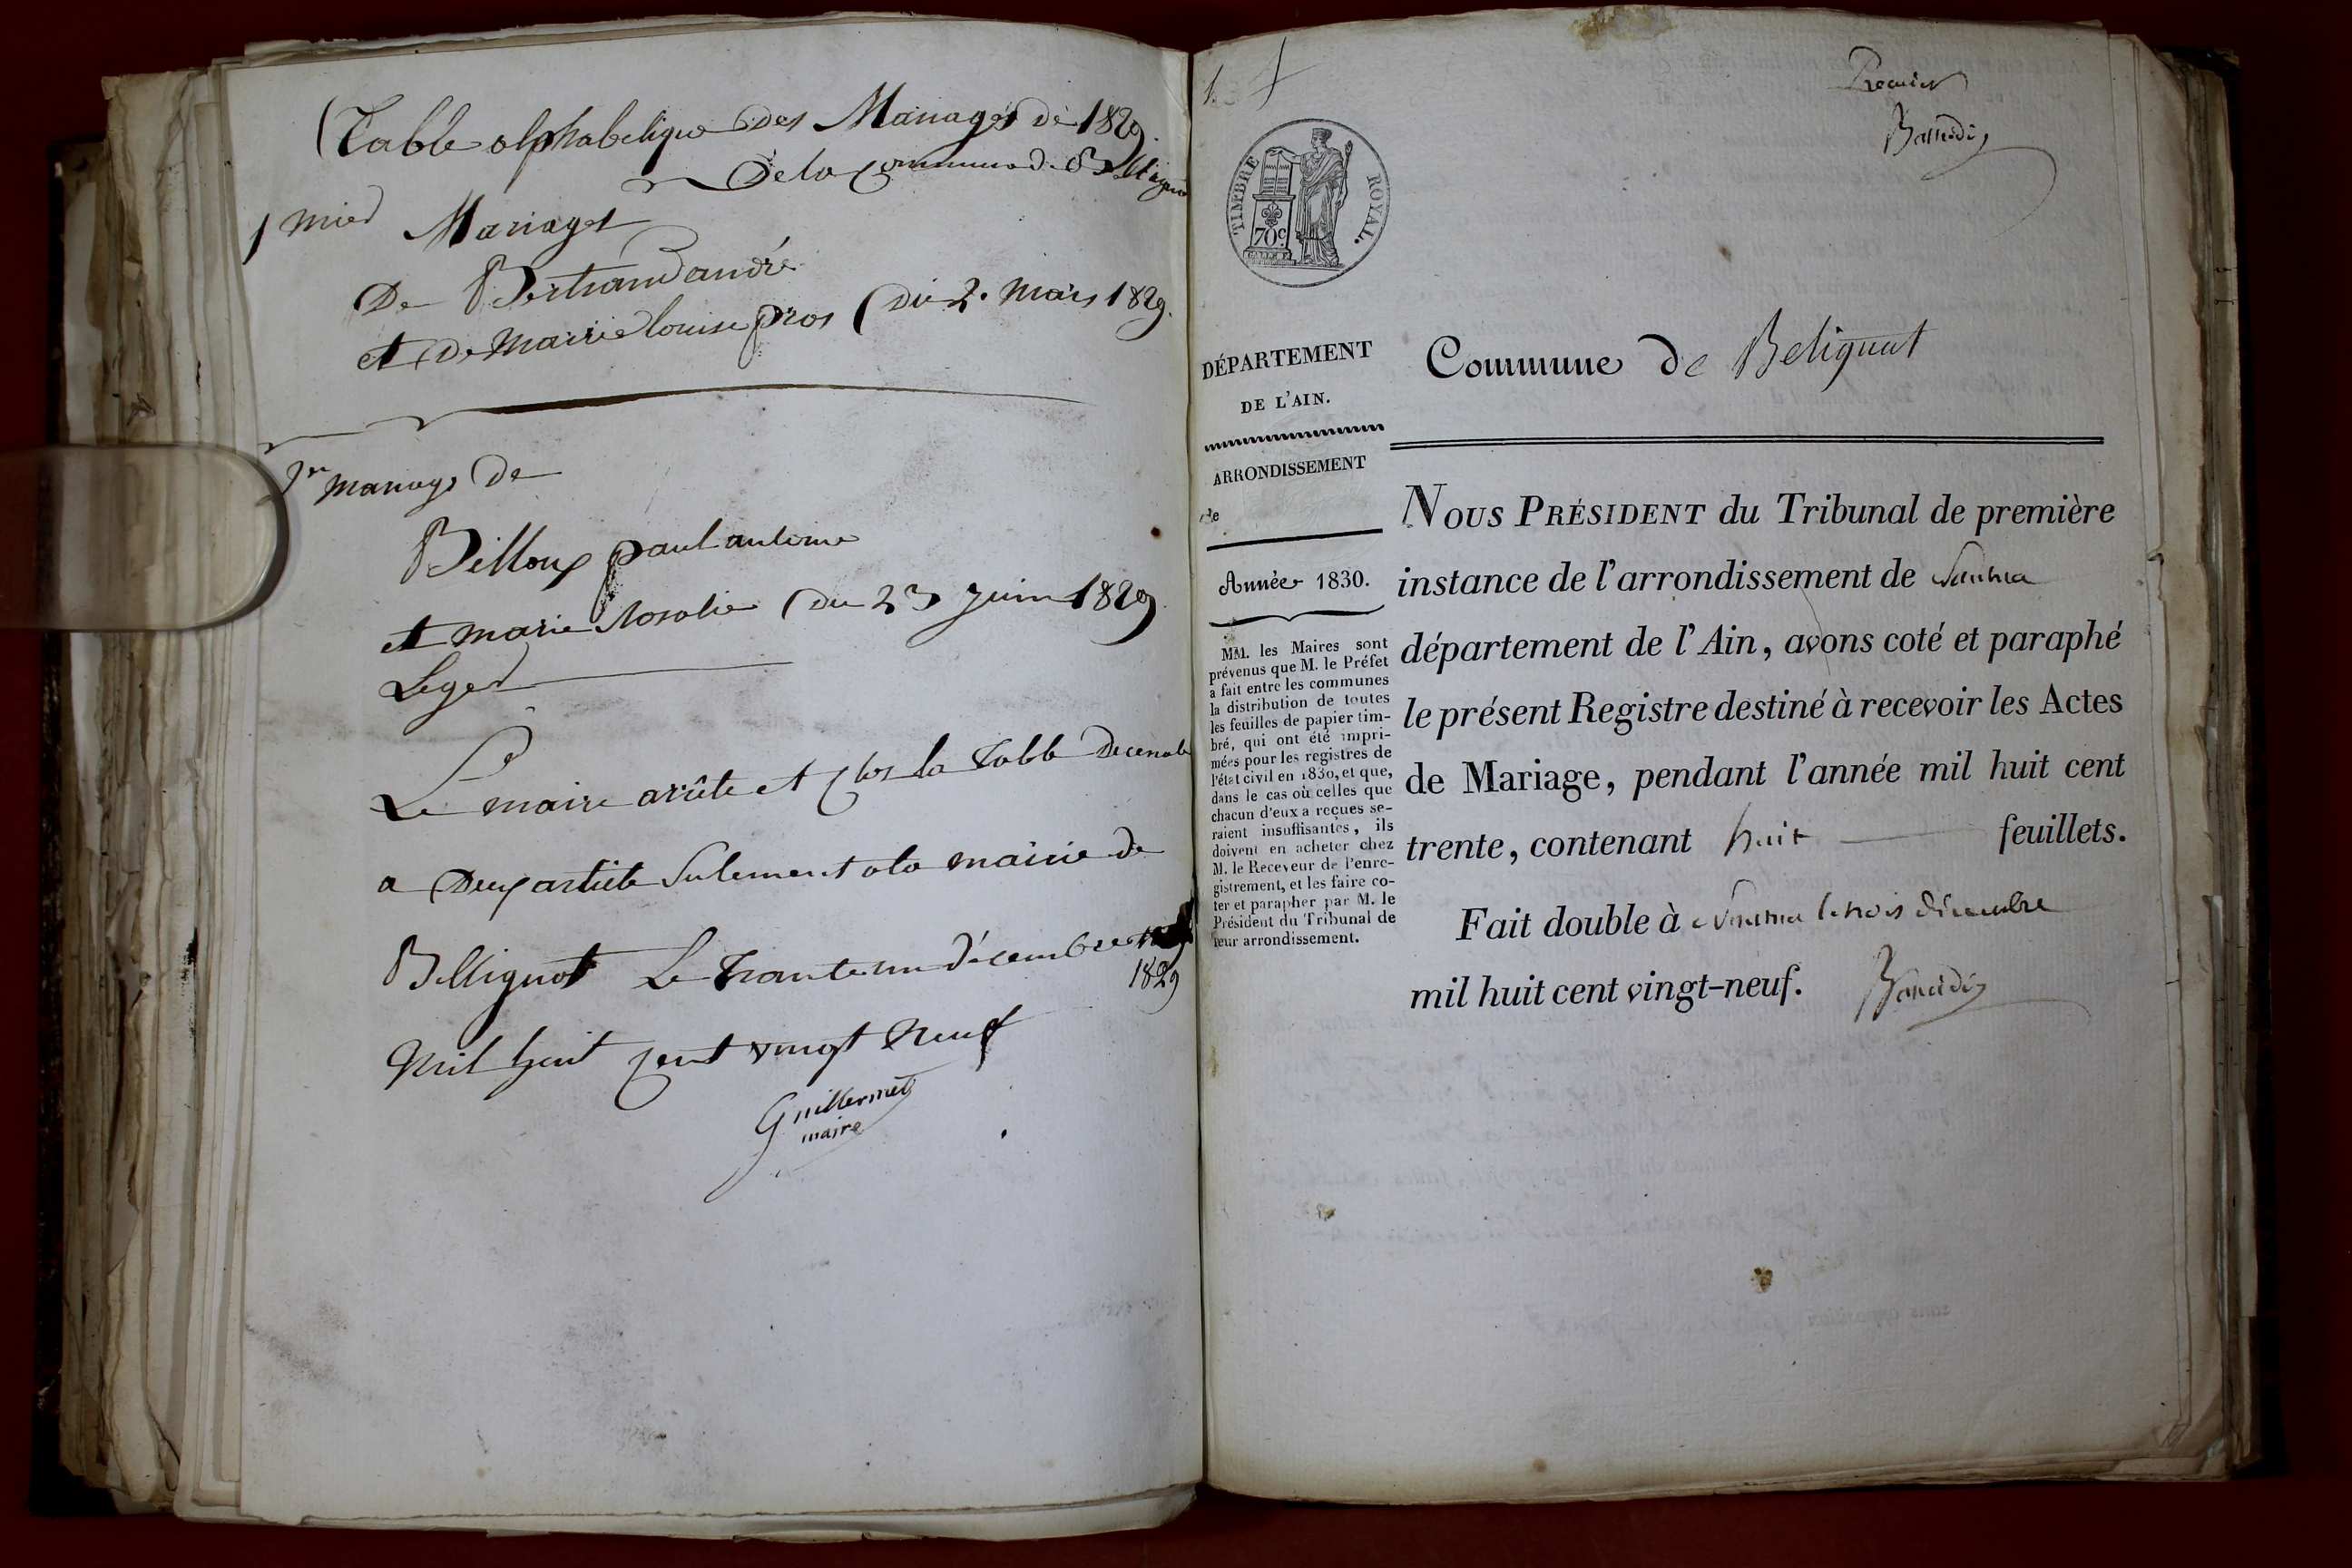 Table alphabetique des Mariages de 1829
De la Commune de Bellignat
1 Mier Mariages
De Bertrand andré
et de Marie louise pros (du 2. Mars 1829.
Mariage De
Billoux paul antoine
et marie Rosalie (du 23 Juin 1829
Leger
Le maire arrête et Clos la table decenale
a Deux article Sulement a la mairie de
Bellignat Le trante un décembre
1829
Mil huit Cent vingt Neuf
Guillermet
maire
1.
Premier
TIMBRE ROYAL.
70c
DÉPARTEMENT
DE L'AIN.
ARRONDISSEMENT
de
Année 1830.
MM. les Maires sont
prévenus que M. le Préfet
a fait entre les communes
la distribution de toutes
les feuilles de papier tim-
bré, qui ont été impri-
mées pour les registres de
l'état civil en 1830, et que,
dans le cas où celles que
chacun d'eux a reçues se-
raient insuffisantes, ils
doivent en acheter chez
M. le Receveur de l'enre-
gistrement, et les faire co-
ter et parapher par M. le
Président du Tribunal de
leur arrondissement.
Commune de Belignat
NOUS PRÉSIDENT du Tribunal de première
instance de l'arrondissement de Nantua
département de l'Ain, avons coté et paraphé
le présent Registre destiné à recevoir les Actes
de Mariage, pendant l'année mil huit cent
trente, contenant huit feuillets.
Fait double à Nantua le trois décembre
mil huit cent vingt-neuf.